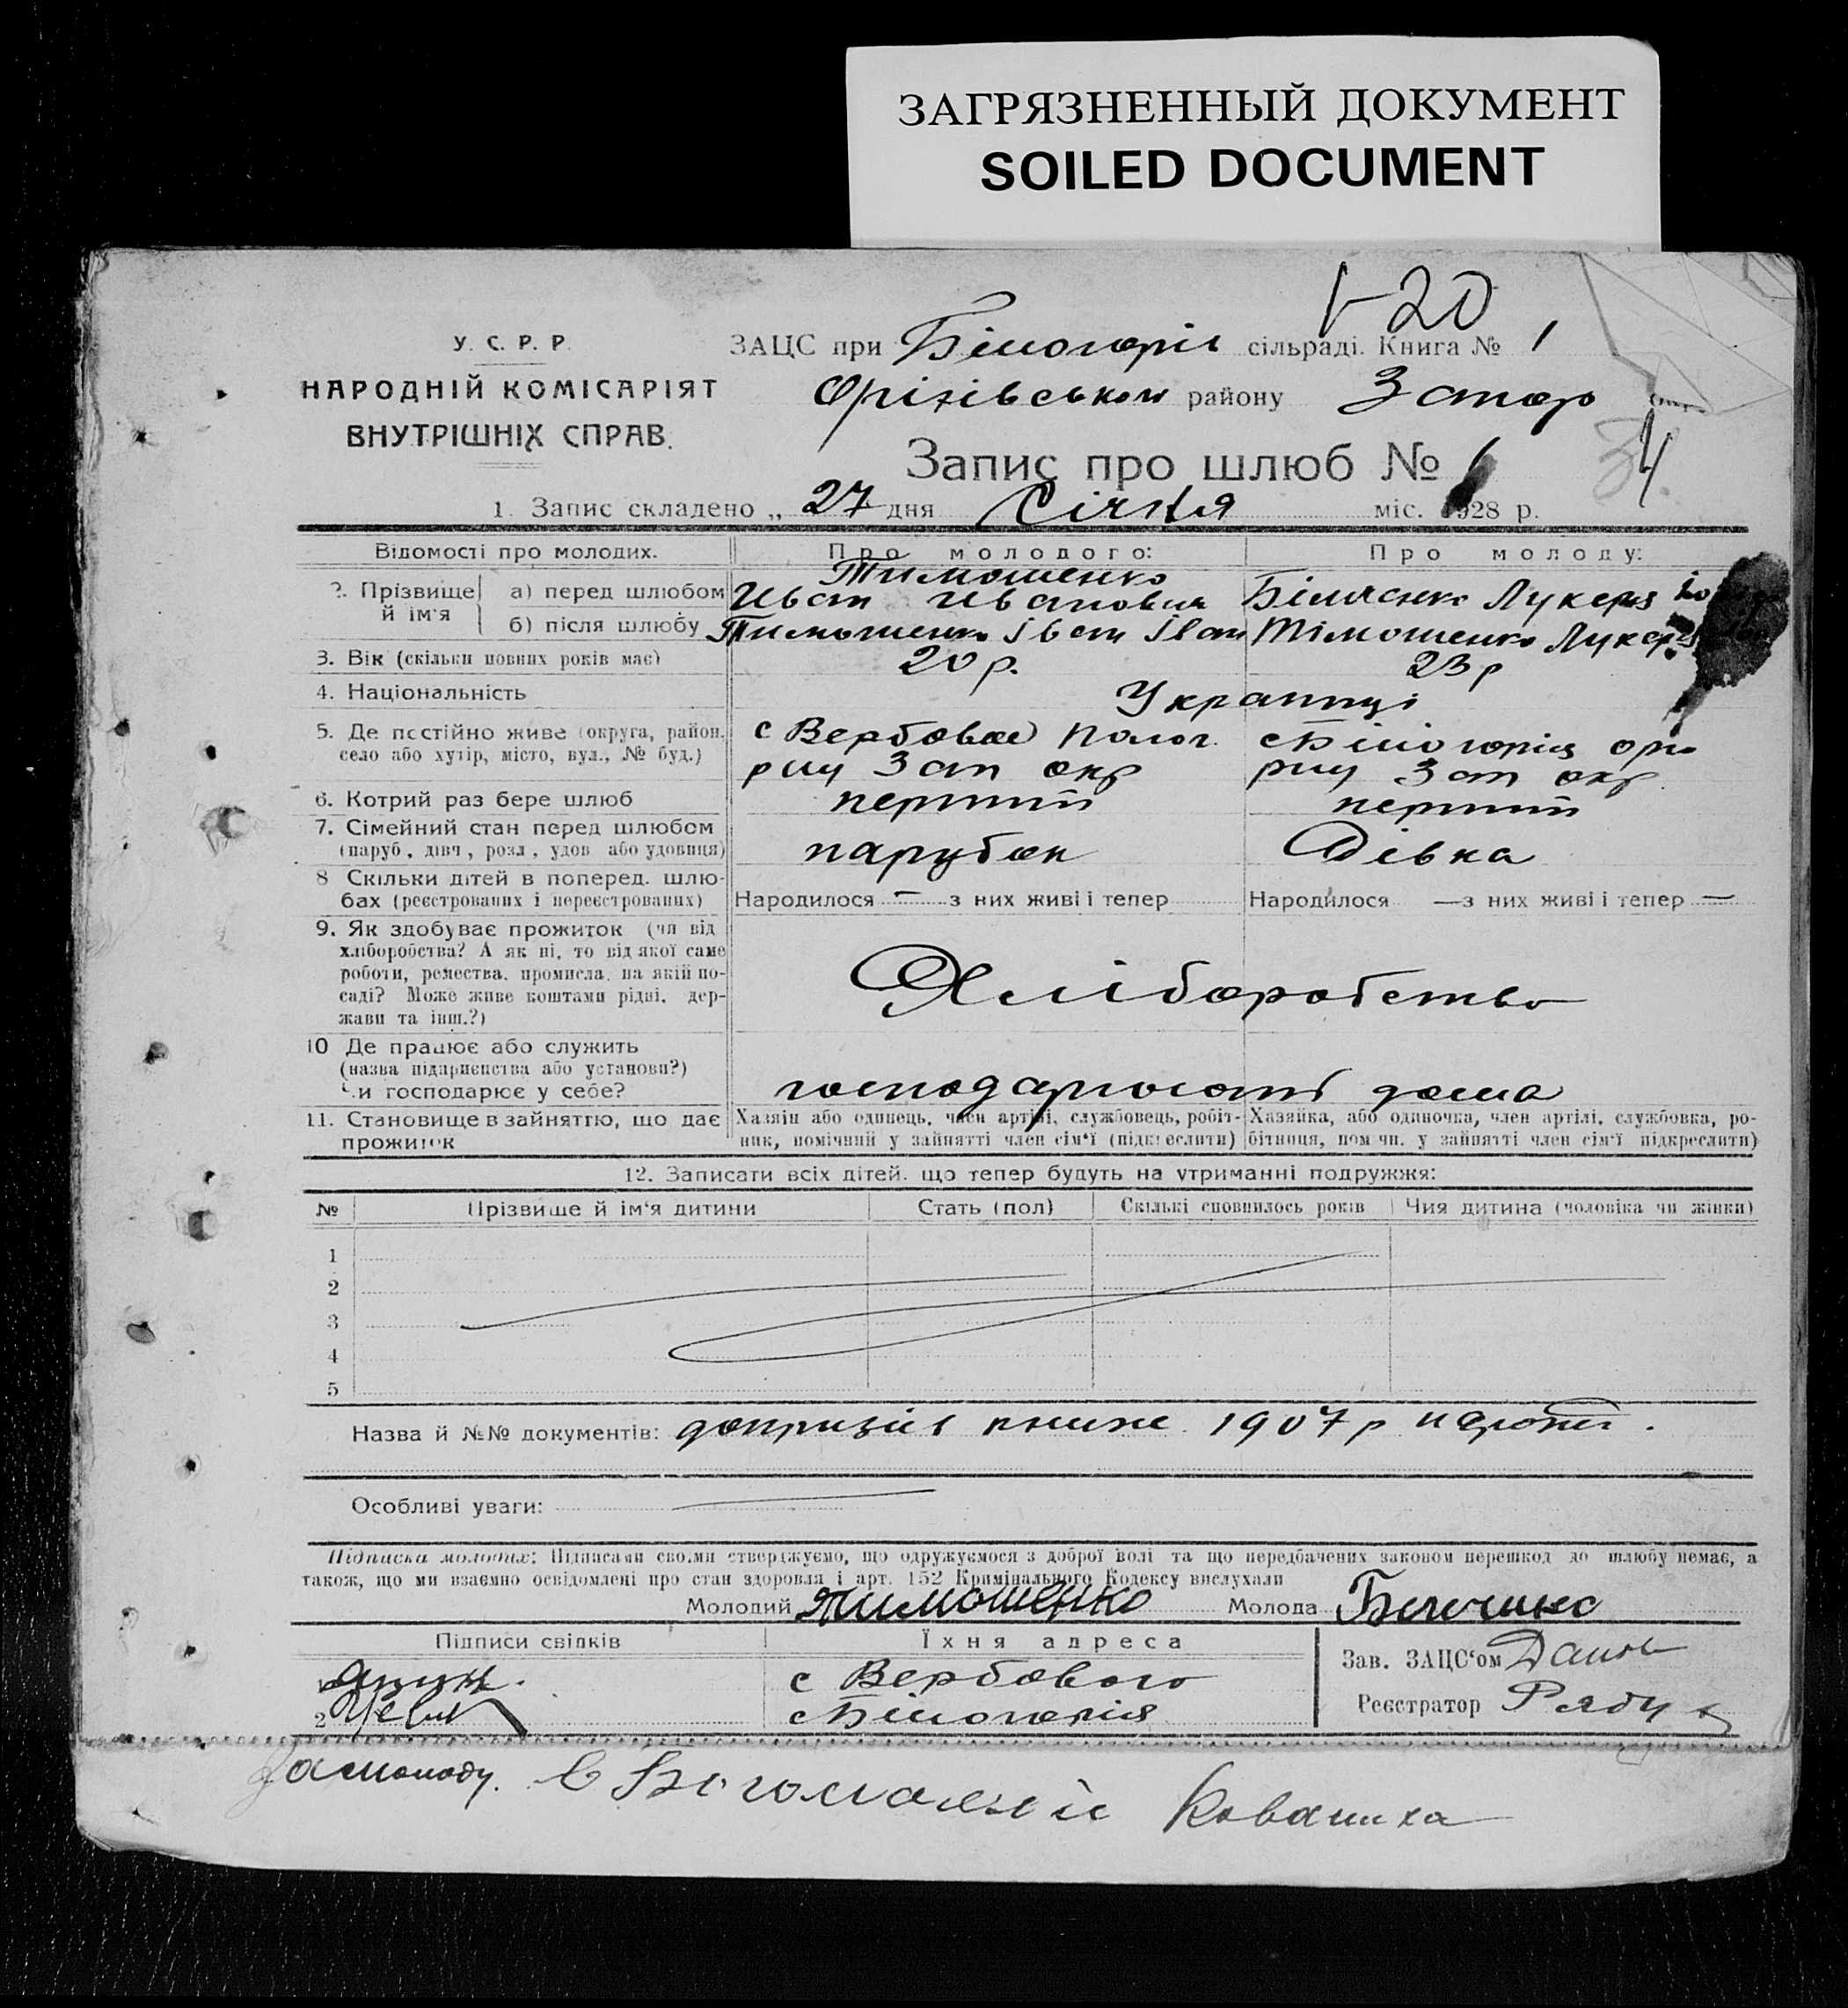 ЗАГРЯЗНЕННЫЙ ДОКУМЕНТ
SOILED DOCUMENT
1-20
У. С. Р. Р.
НАРОДНІЙ КОМІСАРІЯТ
ВНУТРІШНІХ СПРАВ.
ЗАЦС при Білогоріє сільраді. Книга № 1
Оріхівського району Запор окр.
Запис про шлюб № 1
4
1. Запис складено „ 27 дня Січня міс. 1928 р.
Відомості про молодих. Про молодого: Про молоду:
2. Прізвище й ім'я
а) перед шлюбом Тимошенко Иван Иванович Лукеря
б) після шлюбу Тимошенко Іван Іван Тімошенко Лукеря
3. Вік (скільки повних років має) 20 р. 23 р
4. Національність Українці
5. Де постійно живе (округа, район,
село або хутір, місто, вул., № буд.)
с Вербовое Полог.
рну Зап окр
с Білогорія орі
рну Зап окр
6. Котрий раз бере шлюб перший перший
7. Сімейний стан перед шлюбом
(паруб., дівч., розл., удов. або удовиця)
парубок Дівка
8 Скільки дітей в поперед. шлю-
бах (реєстрованих і нереєстрованих)
Народилося — з них живі і тепер Народилося — з них живі і тепер —
9. Як здобуває прожиток (чи від
хліборобства? А як ні, то від якої саме
роботи, ремества, промисла, на якій по-
саді? Може живе коштами рідні, дер-
жави та інш.?)
Хліборобство
10 Де працює або служить
(назва підприємства або установи?)
Чи господарює у себе?
господарюють дома
11. Становище в зайняттю, що дає
прожиток
Хазяїн або одинець, член артілі, службовець, робіт-
ник, помічний у зайнятті член сім'ї (підкреслити)
Хазяйка, або одиночка, член артілі, службовка, ро-
бітниця, помічн. у зайнятті член сім'ї підкреслити)
12. Записати всіх дітей, що тепер будуть на утриманні подружжя:
№ Прізвище й ім'я дитини Стать (пол) Скількі сповнилось років Чия дитина (чоловіка чи жінки)
1
2
3
4
5
Назва й №№ документів: книж 1907 р
Особливі уваги:
Підписка молодих: Підписами своіми стверджуємо, що одружуємося з доброї волі та що передбачених законом перешкод до шлюбу немає, а
також, що ми взаємно освідомлені про стан здоровля і арт. 152 Кримінального Кодексу вислухали
Молодий Тимошенко Молода
Підписи свідків Їхня адреса
1 с Вербового
2 с Білогорія
Зав. ЗАЦС'ом
Реєстратор